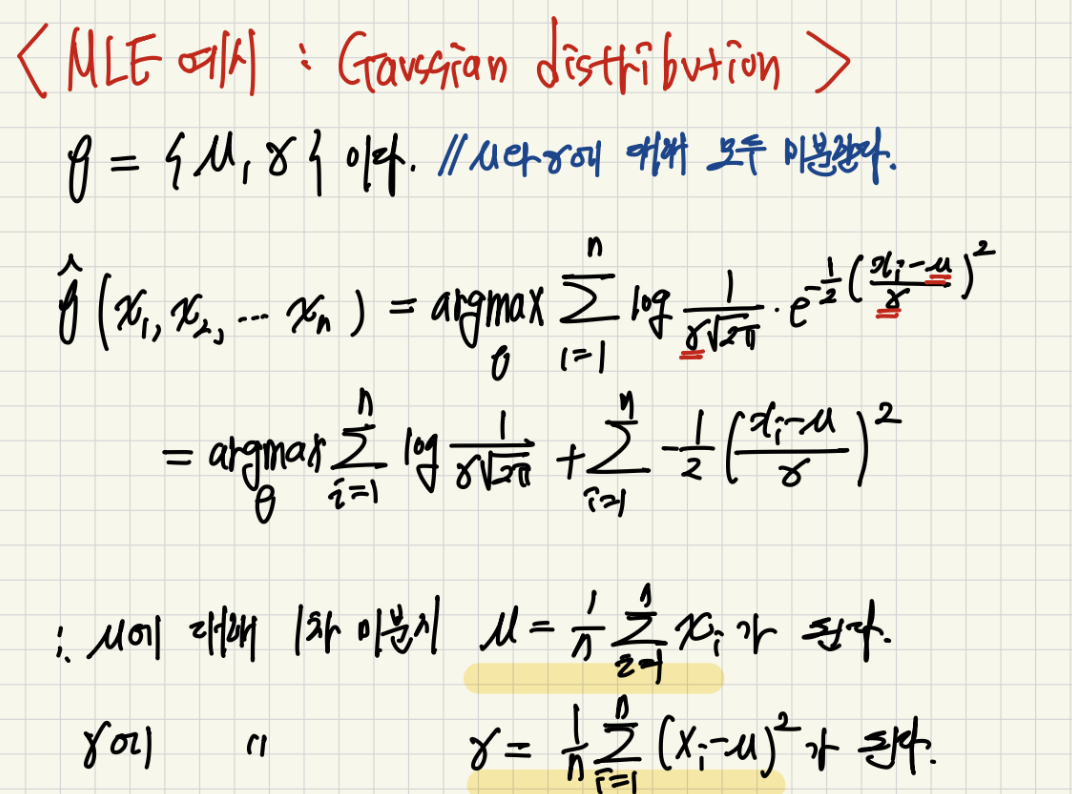 < MLE 예시 : Gaussian distribution >
θ = { μ, σ } 이다. // μ와 σ에 대해 모두 미분한다.
θ̂ (x₁, x₂, ... xₙ) = argmax_θ Σ_{i=1}^{n} log 1/(σ√(2π)) · e^{-1/2 ((xᵢ-μ)/σ)²}
= argmax_θ Σ_{i=1}^{n} log 1/(σ√(2π)) + Σ_{i=1}^{n} -1/2 ((xᵢ-μ)/σ)²
∴ μ에 대해 1차 미분시 μ = 1/n Σ_{i=1}^{n} xᵢ 가 된다.
σ에 〃 σ = 1/n Σ_{i=1}^{n} (xᵢ-μ)² 가 된다.